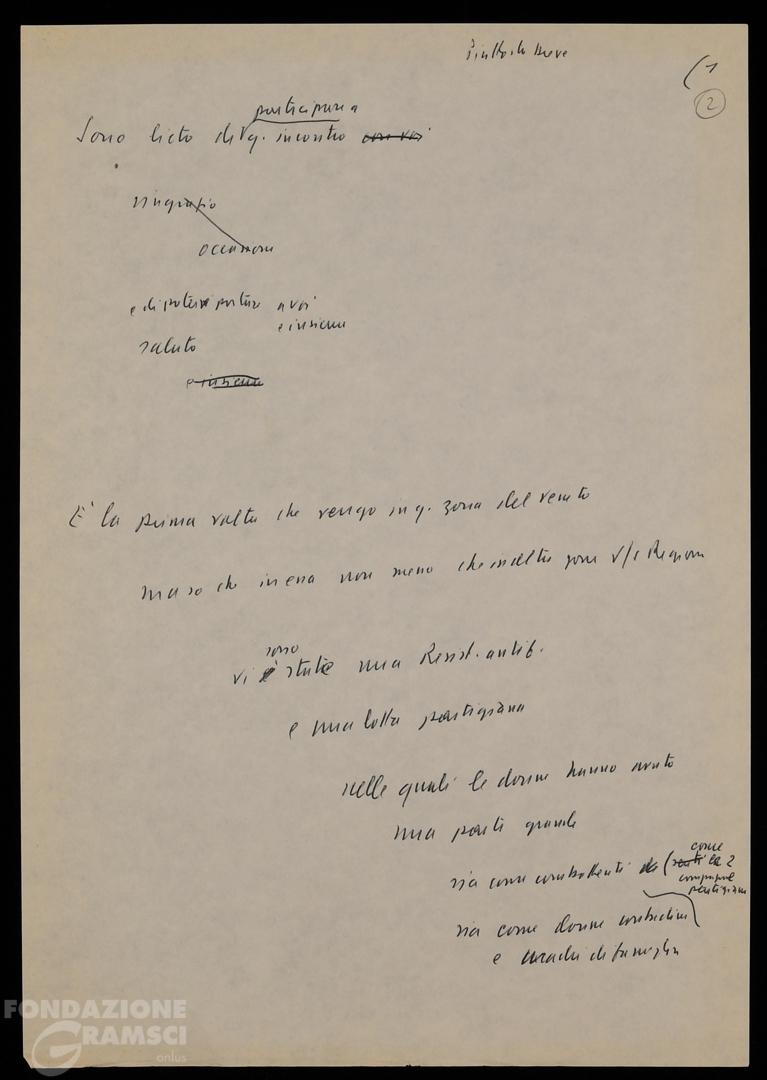 Piuttosto breve
(1
2
partecipare a
Sono lieto di q. incontro con voi
ringrazio
occasione
e di poter portare a voi
e insieme
saluto
e insieme
È la prima volta che vengo in q. zona del Veneto
ma so che in essa non meno che in altre zone v/s Regione
sono
vi è state una Resist. antif.
e una lotta partigiana
nelle quali le donne hanno avuto
una parte grande
sia come combattenti (come
le 2
compagne
partigiane
sia come donne contadine
e madri di famiglia
FONDAZIONE
GRAMSCI
onlus